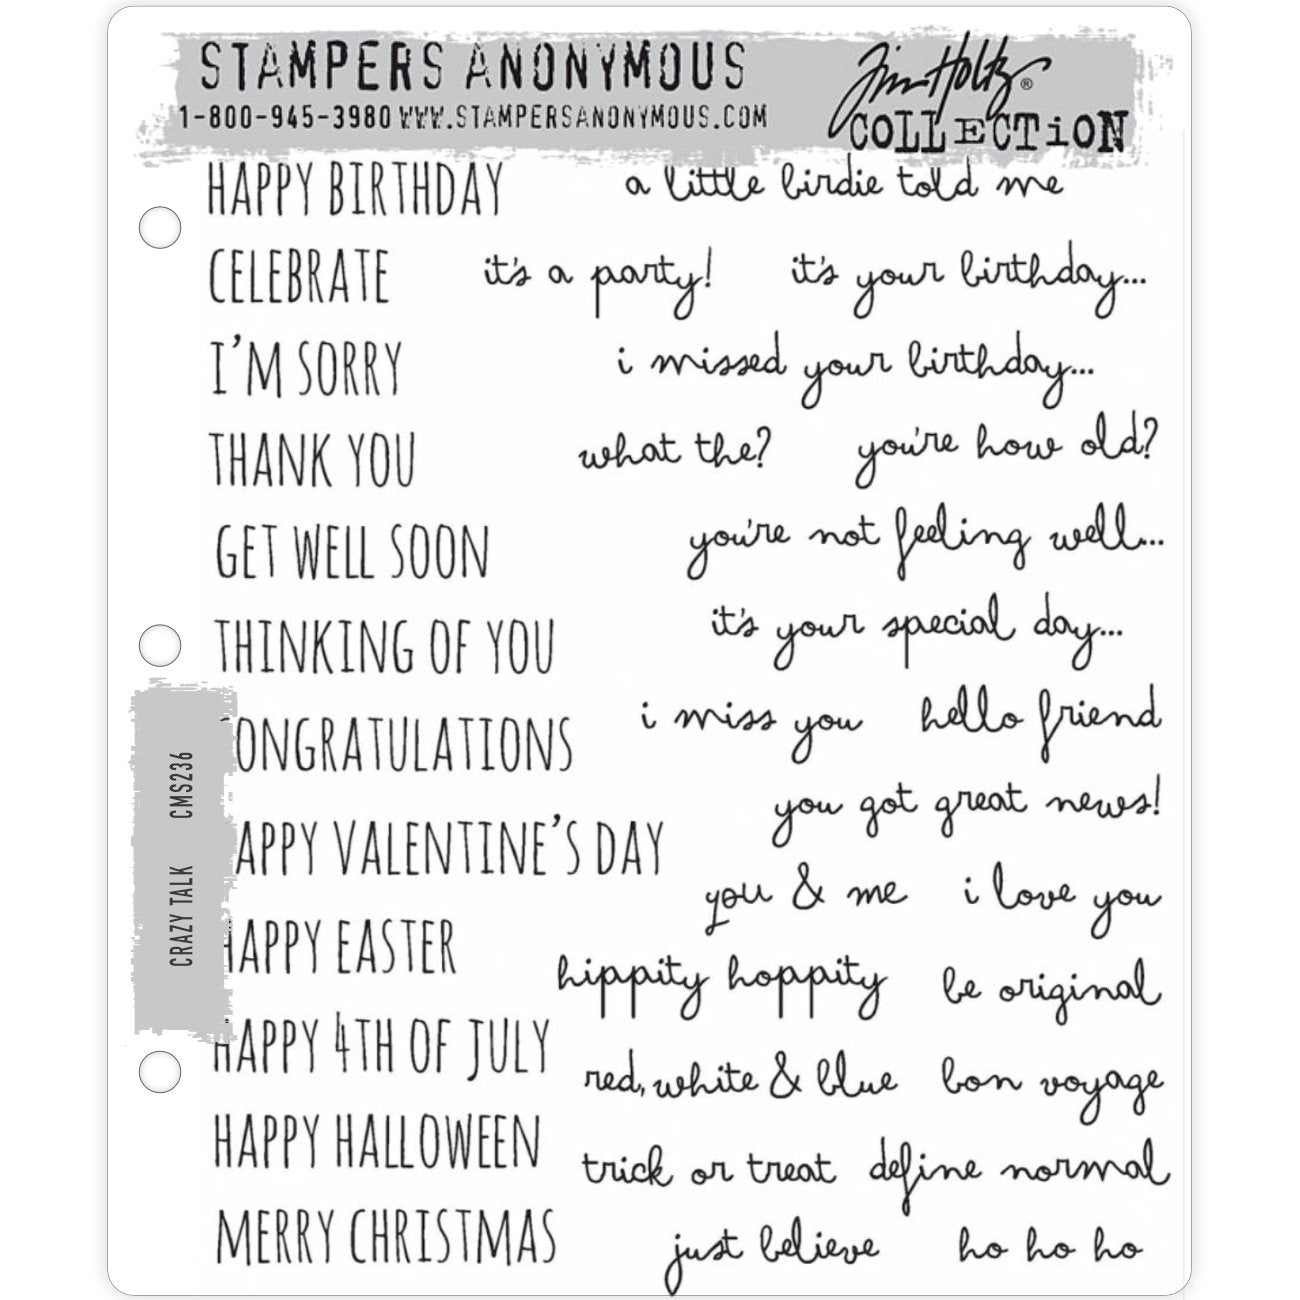 STAMPERS ANONYMOUS
1-800-945-3980 WWW.STAMPERSANONYMOUS.COM
Tim Holtz®
COLLECTION
HAPPY BIRTHDAY a little birdie told me
CELEBRATE it's a party! it's your birthday...
I'M SORRY i missed your birthday...
THANK YOU what the? you're how old?
GET WELL SOON you're not feeling well...
THINKING OF YOU it's your special day...
CONGRATULATIONS i miss you hello friend
you got great news!
HAPPY VALENTINE'S DAY
you & me i love you
HAPPY EASTER hippity hoppity be original
HAPPY 4TH OF JULY red, white & blue bon voyage
HAPPY HALLOWEEN trick or treat define normal
MERRY CHRISTMAS just believe ho ho ho
CRAZY TALK CMS236